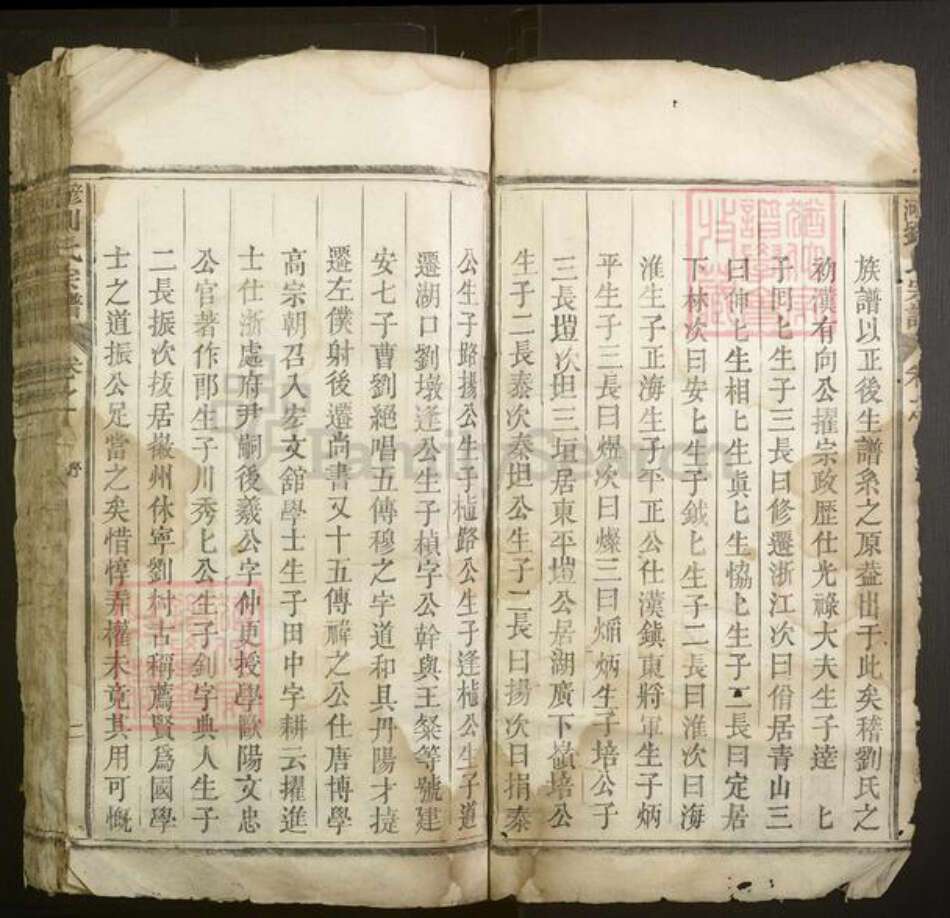 族譜以正後生譜系之原葢出于此矣稽劉氏之
初漢有向公擢宗政歷仕光祿大夫生子逵　匕
子囘匕生子三長曰修遷浙江次曰僧居青山三
曰伸匕生相匕生眞匕生恊匕生子二長曰定居
下林次曰安匕生子鉞匕生子二長曰淮次曰海
淮生子正海生子平正公仕漢鎭東將軍生子炳
平生子三長曰煜次曰燦三曰炳生子培公子
三長塏次坦三垣居東平塏公居湖廣下嶺培公
生子二長泰次秦坦公生子二長曰揚次曰捐泰
公生子路揚公生子植路公生子逢植公生子道
遷湖口劉墩逢公生子楨字公幹與王粲等號建
安七子曹劉絕唱五傳穆之字道和具丹陽才㨗
遷左僕射後遷尚書又十五傳禕之公仕唐博學
高宗朝召入宏文舘學士生子田中字耕云擢進
士仕浙處府尹嗣後羲公字仲更授學歐陽文忠
公官著作郎生子川秀匕公生子釗字典人生子
二長振次拔居徽州休寧劉村古稱薦賢爲國學
士之道振公足當之矣惜惇弄權未竟其用可慨
劉氏宗譜
序